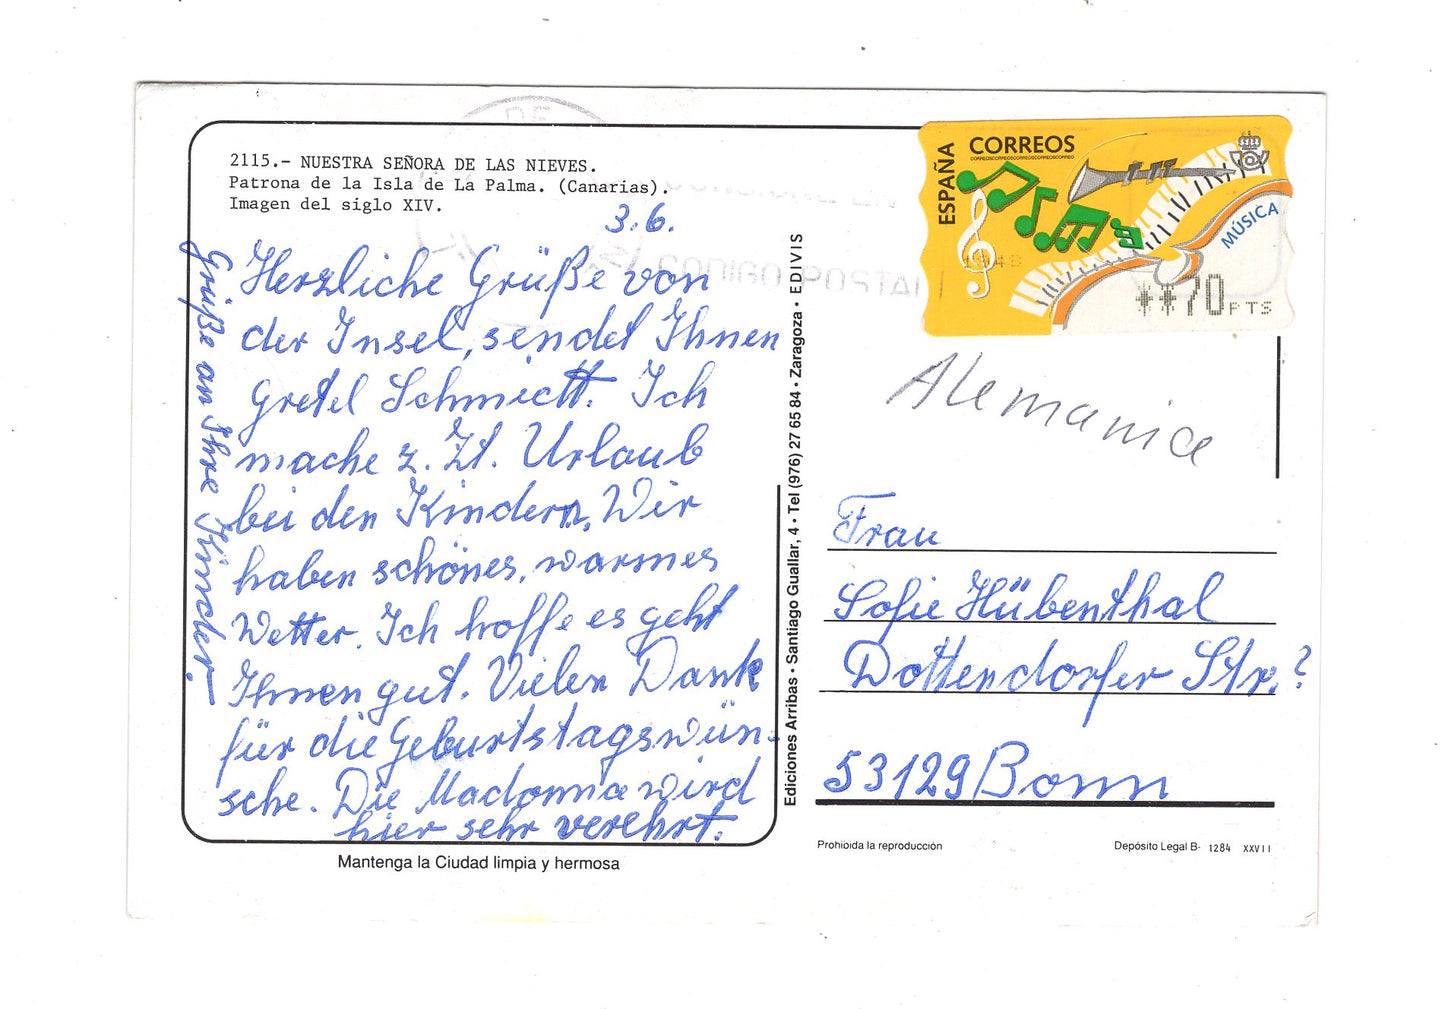 2115.- NUESTRA SEÑORA DE LAS NIEVES.
Patrona de la Isla de La Palma. (Canarias).
Imagen del siglo XIV.
3.6.
Herzliche Grüße von
der Insel, sendet Ihnen
Gretel Schmidt. Ich
mache z. Zt. Urlaub
bei den Kindern, Wir
haben schönes, warmes
Wetter. Ich hoffe es geht
Ihnen gut. Vielen Dank
für die Geburtstagswün-
sche. Die Madonna wird
hier sehr verehrt.
Grüße an Ihre Kinder!
Mantenga la Ciudad limpia y hermosa
Ediciones Arribas • Santiago Guallar, 4 • Tel (976) 27 65 84 • Zaragoza • EDIVIS
CODIGO POSTAL
ESPAÑA
CORREOS
MÚSICA
**70 PTS
Alemania
Frau
Sofie Hübenthal
Dottendorfer Str.?
53129 Bonn
Prohibida la reproducción
Depósito Legal B- 1284 XXVII